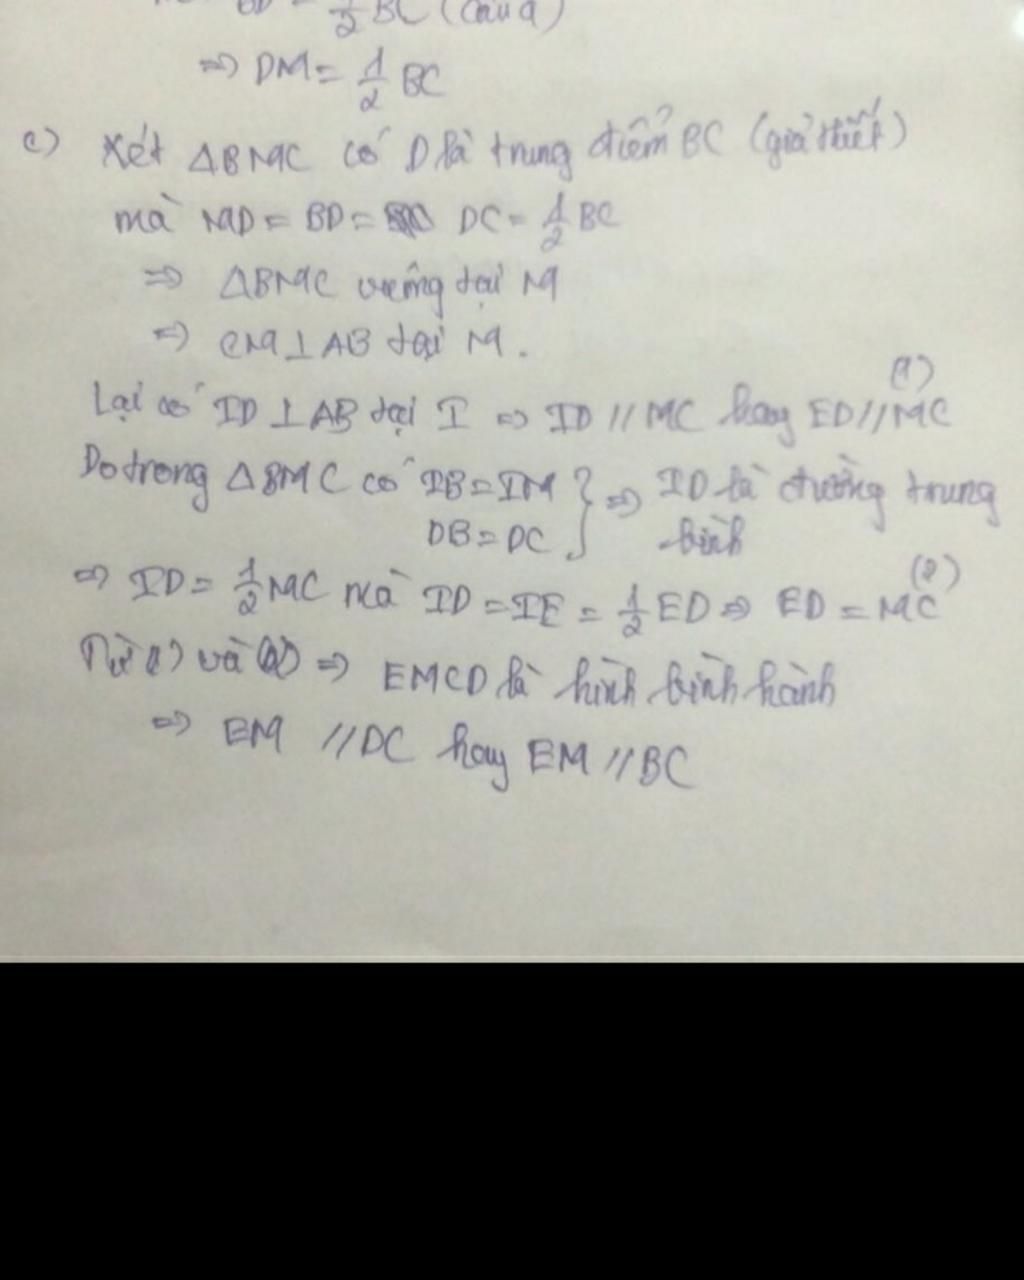 BD = 1/2 BC (câu a)
=> DM = 1/2 BC
c) Xét △BMC có D là trung điểm BC (giả thiết)
mà MD = BD = DC = 1/2 BC
=> △BMC vuông tại M
=> CM ⊥ AB tại M.
Lại có ID ⊥ AB tại I => ID // MC hay ED // MC (1)
Do trong △BMC có IB = IM } => ID là đường trung
DB = DC bình
=> ID = 1/2 MC mà ID = IE = 1/2 ED => ED = MC (2)
Từ (1) và (2) => EMCD là hình bình hành
=> EM // DC hay EM // BC